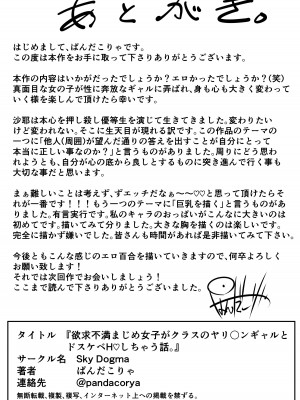 あとがき。
はじめまして、ぱんだこりゃです。
この度は本作をお手に取って下さりありがとうございます。
本作の内容はいかがだったでしょうか？エロかったでしょうか？(笑)
真面目な女の子が性に奔放なギャルに弄ばれ、身も心も大きく変わって
いく様を楽しんで頂けたら幸いです。
沙耶は本心を押し殺し優等生を演じて生きてきました。変わりたい
けど変われない。そこに生天目が現れる訳です。この作品のテーマの
一つに「他人(周囲)が望んだ通りの答えを出すことが自分にとって
本当に正しい事なのか？」と言うものがありました。周りにどう思わ
れようとも、自分が心の底から良しとするものに突き進んで行く事も
大切な事だと思います。
まぁ難しいことは考えず、ずエッチだなぁ〜〜♡♡と思って頂けたらそ
れが一番です！！！！もう一つのテーマに「巨乳を描く」と言うものがあ
りました。有言実行です。私のキャラのおっぱいがこんなに大きいのは
初めてです。描いてみて分りました。大きな胸を描くのは楽しいです。
完全に描かず嫌いでした。皆さんも時間があれば是非描いてみて下さい。
今後ともこんな感じのエロ百合を描いていきますので、何卒よろしく
お願い致します！
それでは次回作でお会いしましょう！
ここまで読んで下さりありがとうございました。
タイトル 『欲求不満まじめ女子がクラスのヤリ〇ンギャルと
ドスケベH♡しちゃう話。』
サークル名 Sky Dogma
著者 ぱんだこりゃ
連絡先 @pandacorya
無断転載、複製、複写、インターネット上への掲載を禁ずる。